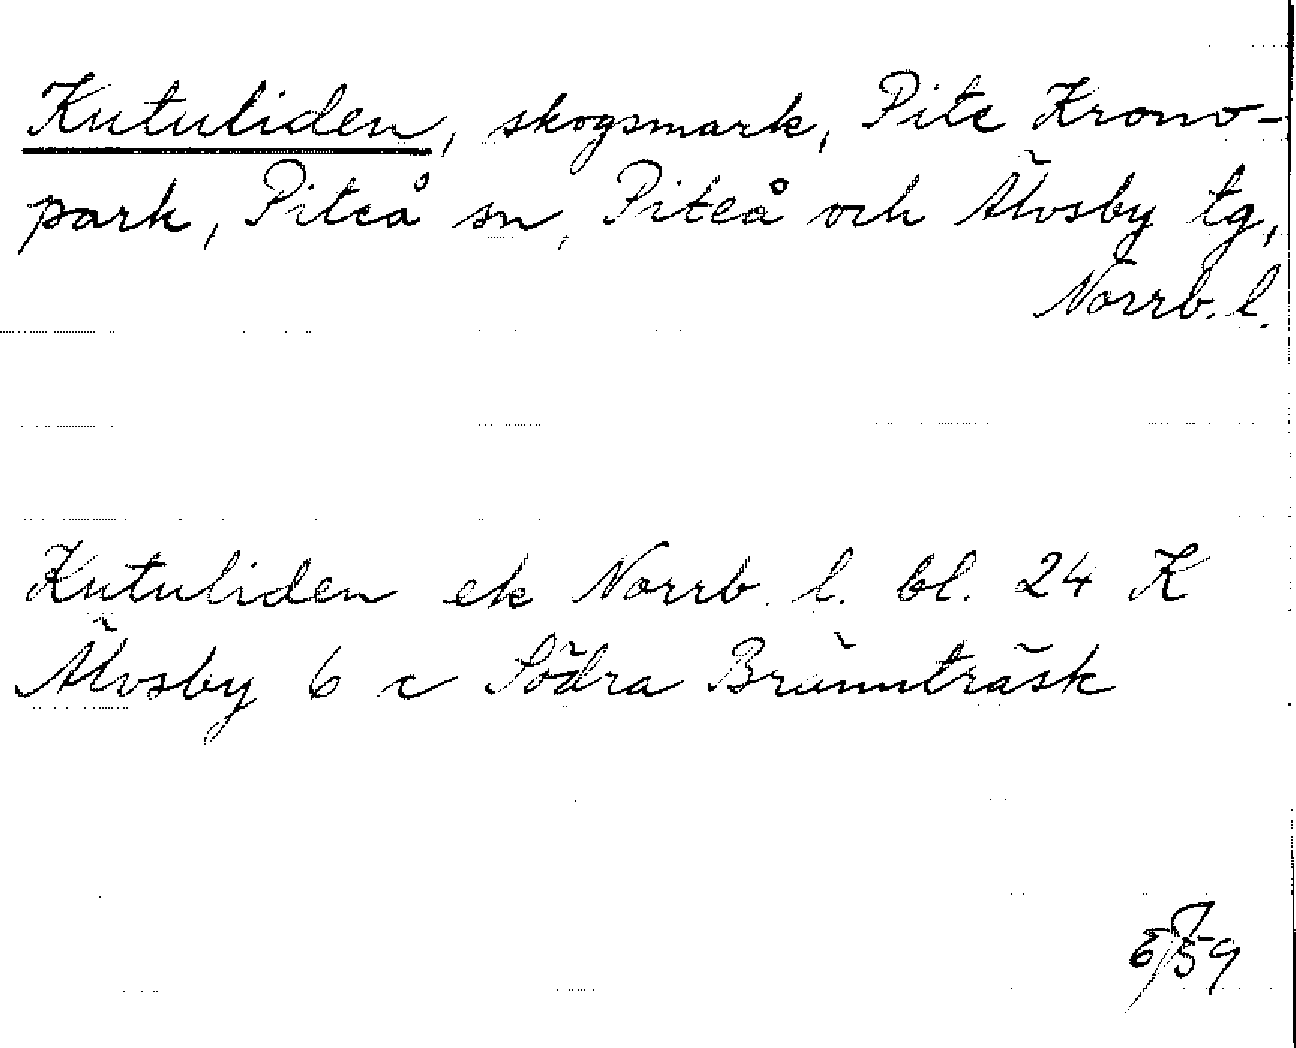 Kutuliden, skogsmark, Pite Krono-
park, Piteå sn, Piteå och Älvsby tg,
Norrb. l.
Kutuliden ek Norrb. l. bl. 24 K
Älvsby 6 c Södra Brännträsk